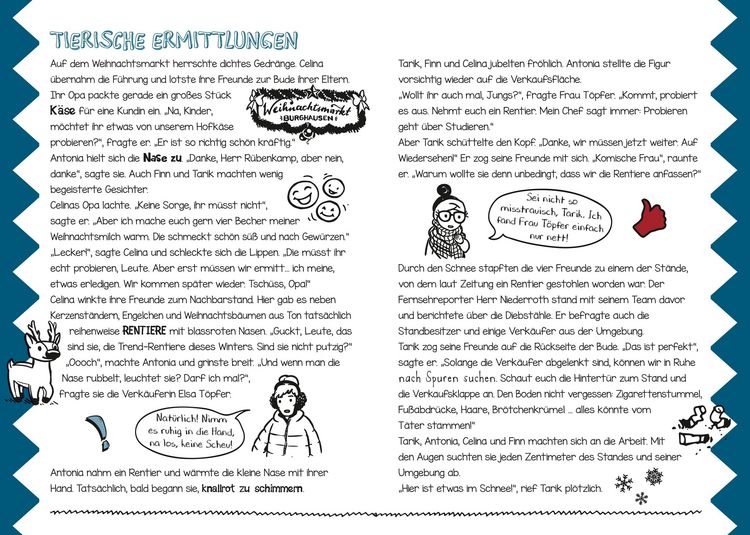 TIERISCHE ERMITTLUNGEN
Auf dem Weihnachtsmarkt herrschte dichtes Gedränge. Celina
übernahm die Führung und lotste ihre Freunde zur Bude ihrer Eltern.
Ihr Opa packte gerade ein großes Stück
Käse für eine Kundin ein. „Na, Kinder,
möchtet ihr etwas von unserem Hofkäse
probieren?“, fragte er. „Er ist so richtig schön kräftig.“
Weihnachtsmarkt
BURGHAUSEN
Antonia hielt sich die Nase zu. „Danke, Herr Rübenkamp, aber nein,
danke“, sagte sie. Auch Finn und Tarik machten wenig
begeisterte Gesichter.
Celinas Opa lachte. „Keine Sorge, ihr müsst nicht“,
sagte er. „Aber ich mache euch gern vier Becher meiner
Weihnachtsmilch warm. Die schmeckt schön süß und nach Gewürzen.“
„Lecker!“, sagte Celina und schleckte sich die Lippen. „Die müsst ihr
echt probieren, Leute. Aber erst müssen wir ermitt... ich meine,
etwas erledigen. Wir kommen später wieder. Tschüss, Opa!“
Celina winkte ihre Freunde zum Nachbarstand. Hier gab es neben
Kerzenständern, Engelchen und Weihnachtsbäumen aus Ton tatsächlich
reihenweise RENTIERE mit blassroten Nasen. „Guckt, Leute, das
sind sie, die Trend-Rentiere dieses Winters. Sind sie nicht putzig?“
„Oooch“, machte Antonia und grinste breit. „Und wenn man die
Nase rubbelt, leuchtet sie? Darf ich mal?“,
fragte sie die Verkäuferin Elsa Töpfer.
Natürlich! Nimm
es ruhig in die Hand,
na los, keine Scheu!
Antonia nahm ein Rentier und wärmte die kleine Nase mit ihrer
Hand. Tatsächlich, bald begann sie, knallrot zu schimmern.
Tarik, Finn und Celina jubelten fröhlich. Antonia stellte die Figur
vorsichtig wieder auf die Verkaufsfläche.
„Wollt ihr auch mal, Jungs?“, fragte Frau Töpfer. „Kommt, probiert
es aus. Nehmt euch ein Rentier. Mein Chef sagt immer: Probieren
geht über Studieren.“
Aber Tarik schüttelte den Kopf. „Danke, wir müssen jetzt weiter. Auf
Wiedersehen!“ Er zog seine Freunde mit sich. „Komische Frau“, raunte
er. „Warum wollte sie denn unbedingt, dass wir die Rentiere anfassen?“
Sei nicht so
misstrauisch, Tarik. Ich
fand Frau Töpfer einfach
nur nett!
Durch den Schnee stapften die vier Freunde zu einem der Stände,
von dem laut Zeitung ein Rentier gestohlen worden war. Der
Fernsehreporter Herr Niederroth stand mit seinem Team davor
und berichtete über die Diebstähle. Er befragte auch die
Standbesitzer und einige Verkäufer aus der Umgebung.
Tarik zog seine Freunde auf die Rückseite der Bude. „Das ist perfekt“,
sagte er. „Solange die Verkäufer abgelenkt sind, können wir in Ruhe
nach Spuren suchen. Schaut euch die Hintertür zum Stand und
die Verkaufsklappe an. Den Boden nicht vergessen: Zigarettenstummel,
Fußabdrücke, Haare, Brötchenkrümel ... alles könnte vom
Täter stammen!“
Tarik, Antonia, Celina und Finn machten sich an die Arbeit. Mit
den Augen suchten sie jeden Zentimeter des Standes und seiner
Umgebung ab.
„Hier ist etwas im Schnee!“, rief Tarik plötzlich.